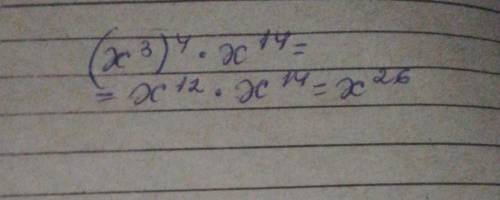 (x³)⁴ · x¹⁴ =
= x¹² · x¹⁴ = x²⁶